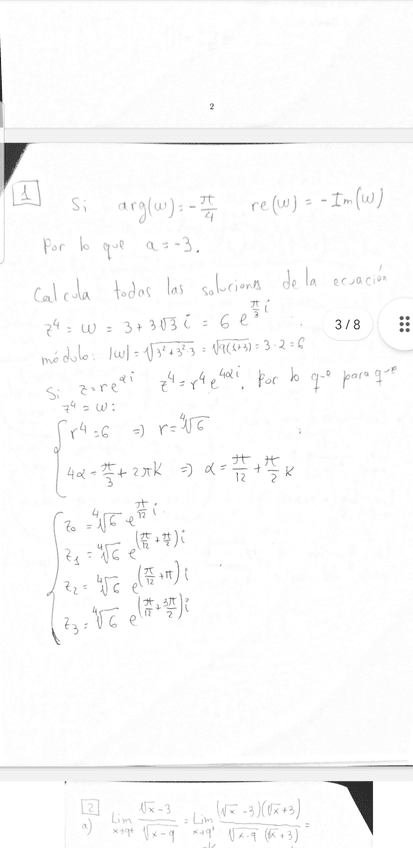 2
1 Si arg(w)=-π/4 re(w) = -Im(w)
Por lo que a=-3.
Calcula todas las soluciones de la ecuación
z⁴ = w = 3+3√3 i = 6 e^(π/3 i)
3 / 8
módulo: |w|=√(3²+3²·3) = √(9(1+3)) = 3·2=6
Si z=re^(αi) z⁴=r⁴e^(4αi). Por lo que para que
z⁴=w:
r⁴=6 => r=⁴√6
4α=π/3+2πK => α=π/12+π/2 K
z₀=⁴√6 e^(π/12 i)
z₁=⁴√6 e^((π/12+π/2)i)
z₂=⁴√6 e^((π/12+π)i)
z₃=⁴√6 e^((π/12+3π/2)i)
2
a) Lim x→9⁺ (√x-3)/(√(x-9)) = Lim x→9⁺ ((√x-3)(√x+3))/(√(x-9) (√x+3)) =